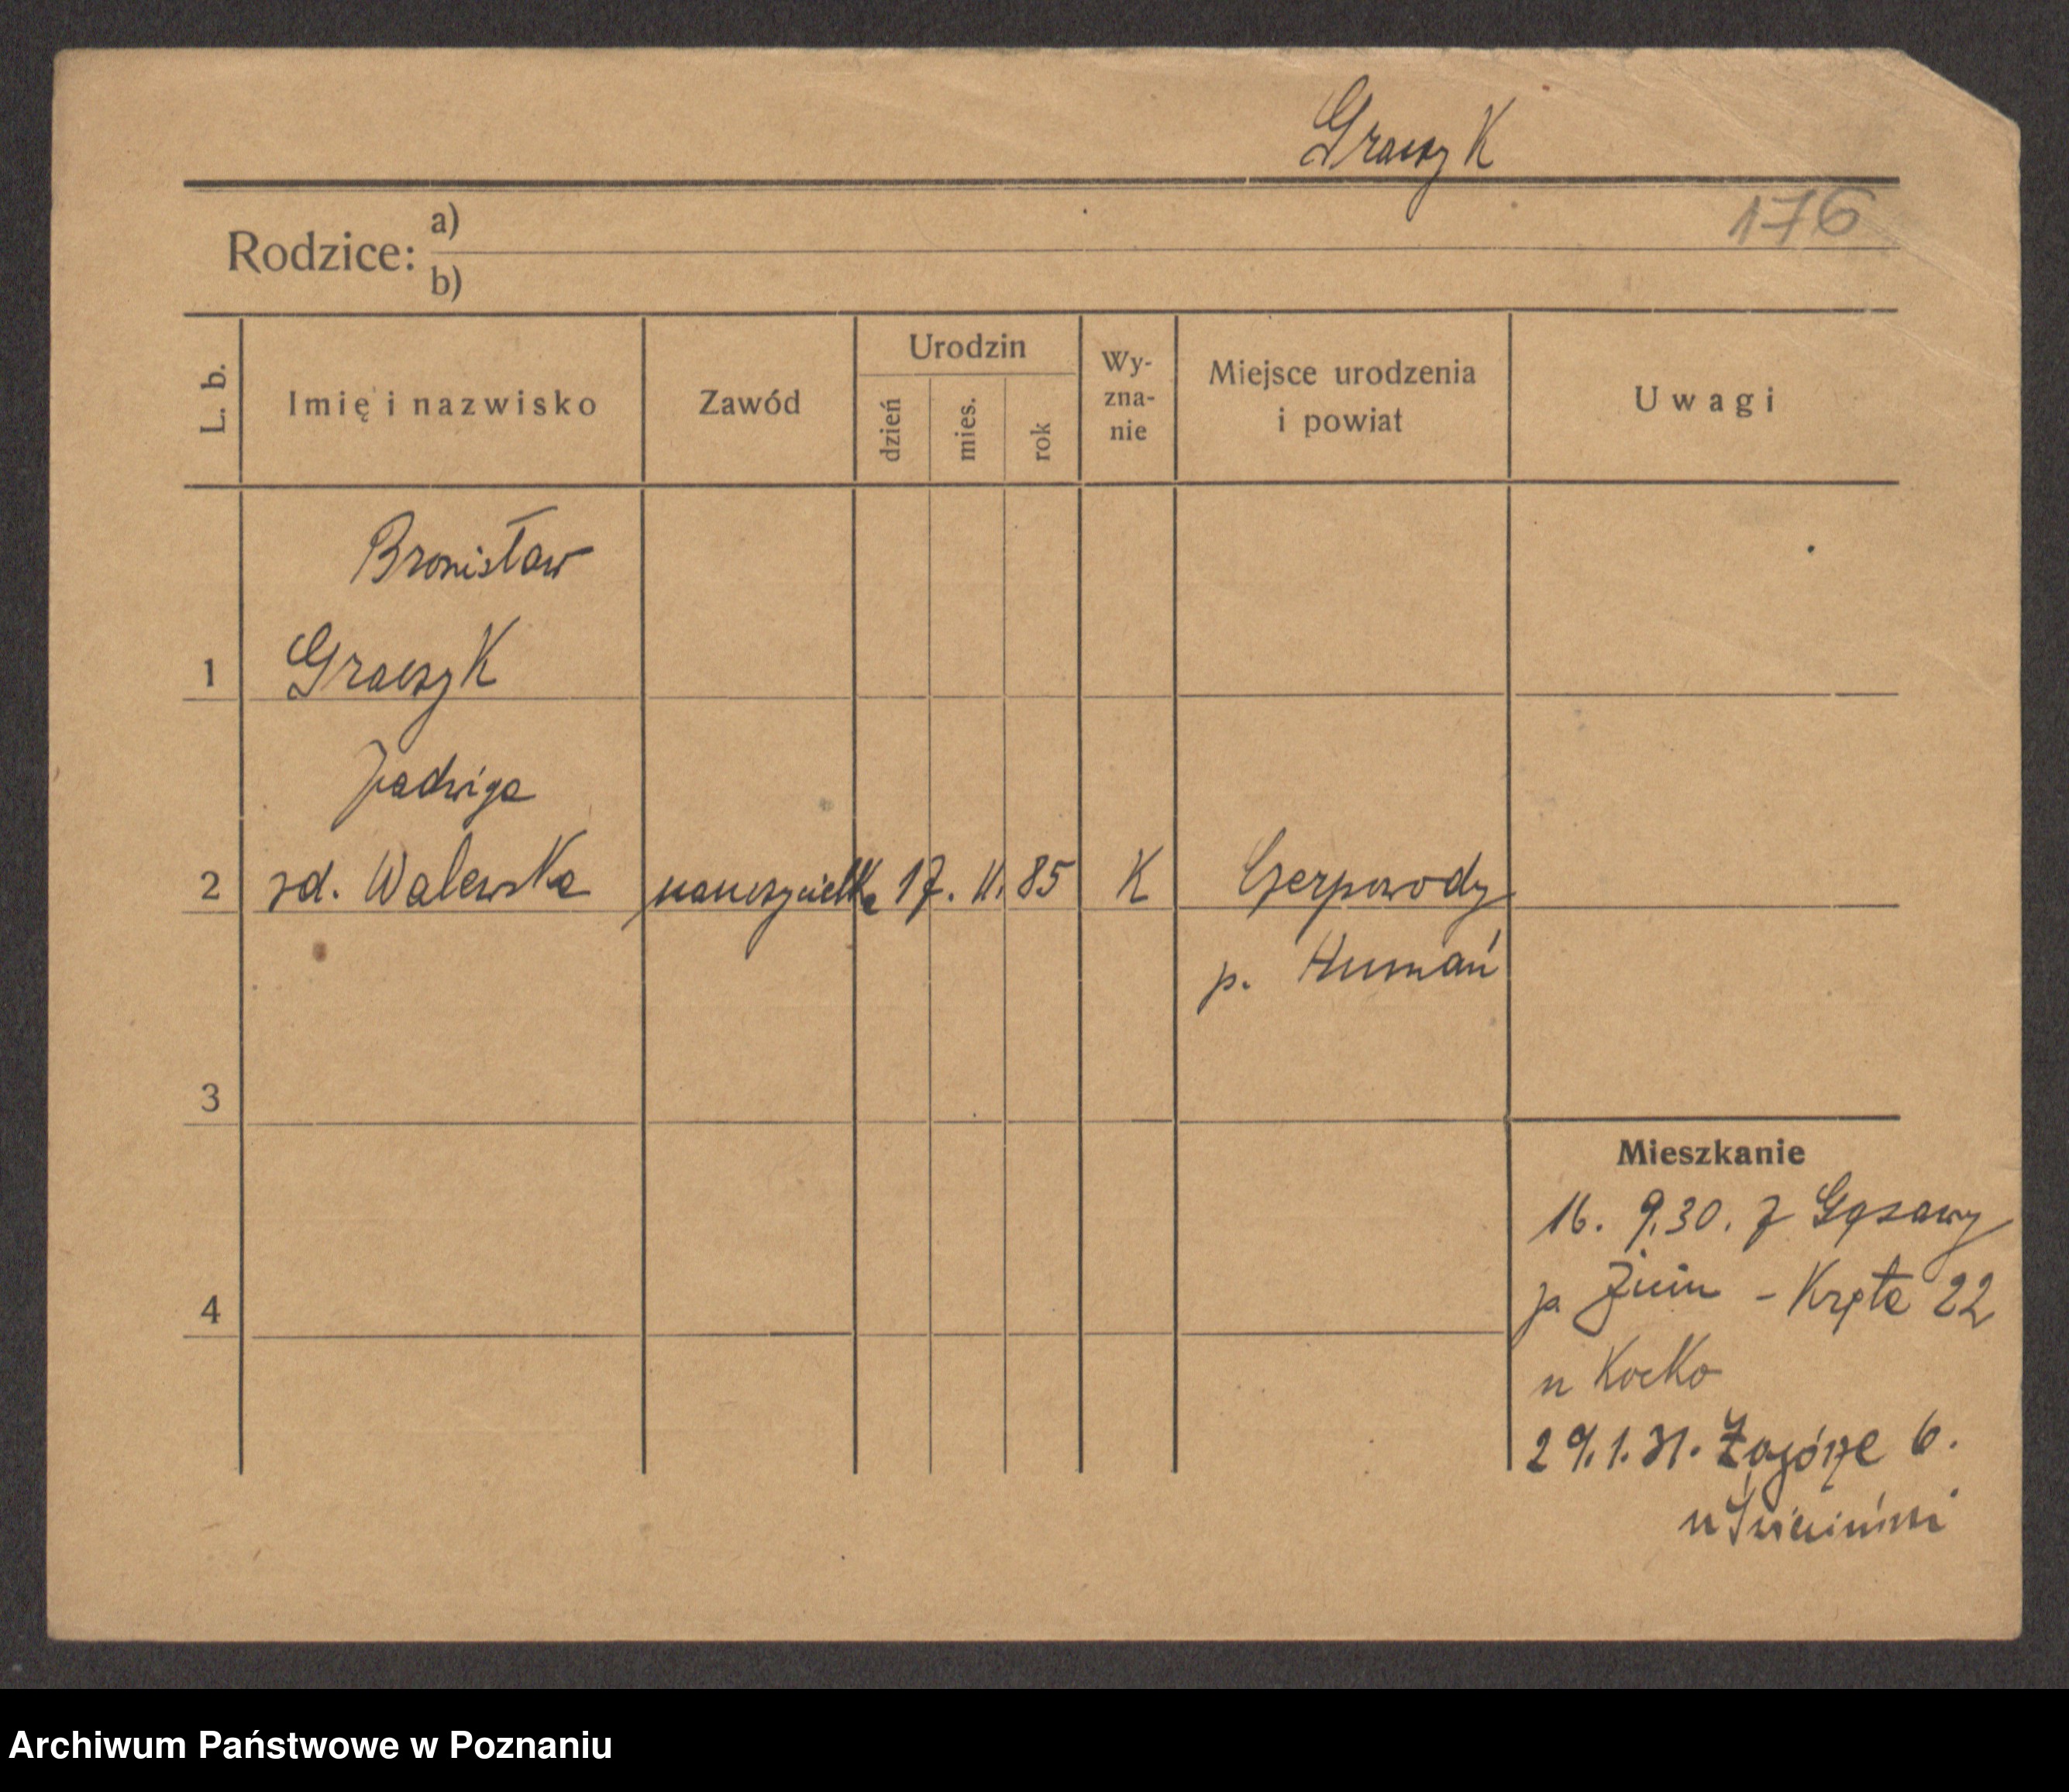 Graczyk
176
Rodzice: a)
b)
L. b.
Imię i nazwisko
Zawód
Urodzin
dzień
mies.
rok
Wy-
zna-
nie
Miejsce urodzenia
i powiat
Uwagi
Bronisław
1 Graczyk
Jadwiga
2 zd. Walewska nauczycielka 17. II. 85 K Czerpowody
p. Humań
3
Mieszkanie
16. 9.30. z Gąsawy
p Żnin - Kręta 22
4
u Kocko
29.1.31. Zagórze 6.
u
Archiwum Państwowe w Poznaniu